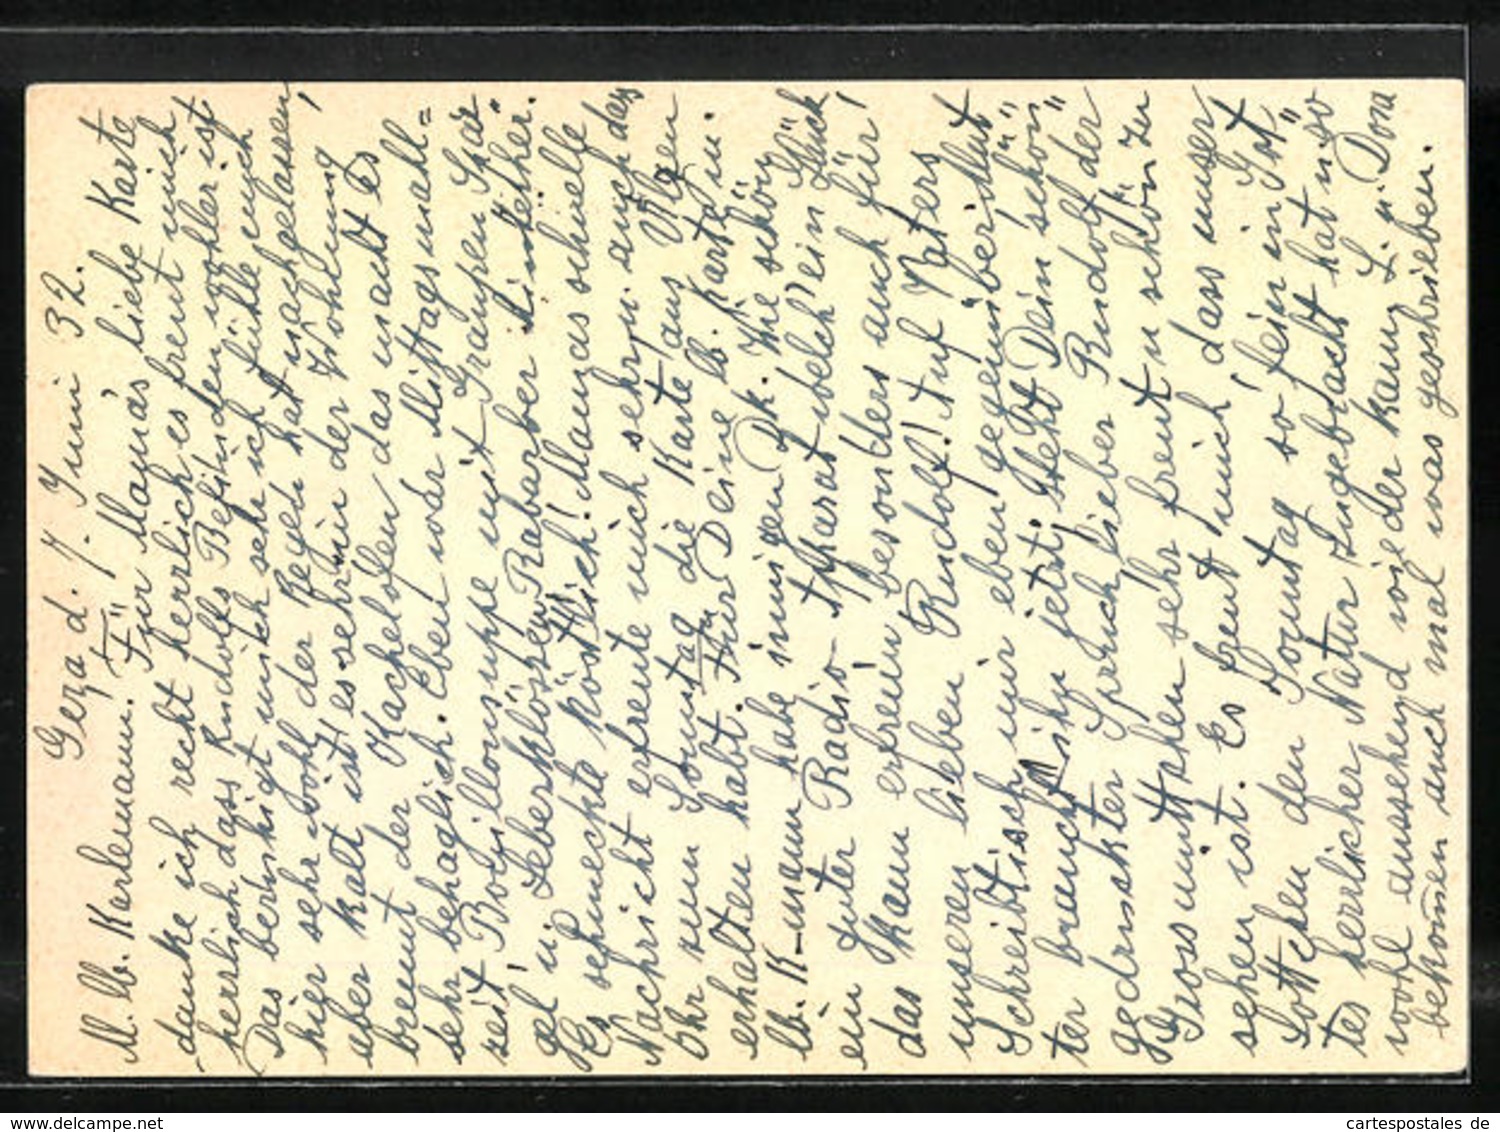 Gera d. 7. Juni 32.
M. lb. Karlemann. Für Mama's liebe Karte
danke ich recht herzlich es freut mich
herzlich dass Rudolfs Befinden wohler ist
Das beruhigt mich sehr ich fühle mich
hier sehr wohl der Regen hat nachgelassen
aber kalt ist es sehr, in der Wohnung
brennt der Kachelofen das macht es
sehr behaglich. Eben war Mittagsmahl=
zeit Bouillonsuppe mit Graupen Spar=
gel u. Leberklösse Rabarber hinterher.
Es schmeckte köstlich! Mamas schnelle
Nachricht erfreute mich sehr u. auch das
Ihr zum Sonntag die Karte aus
erhalten habt. Für Deine lb. Karte m.
lb. K-mann habe innigen Dk. Wie schön
ein guter Radio-Apparat welch' ein Glück
das kann erfreun besonders auch für
unseren lieben Rudolf! Auf Vaters
Schreibtisch mir eben gegenüber
ter braucht ihn jetzt, steht Dein schön
gedruckter Spruch lieber Rudolf der
Grossmuttchen sehr freut u. schön zu
sehen ist. Es freut mich dass unser
Lottchen den Sonntag so fein in Got=
tes herrlicher Natur zugebracht hat u. so
wohl aussehend wieder kam, L. Dora
bekommen auch mal was geschrieben.
cartespostales.de
www.delcampe.net
cartespostales de